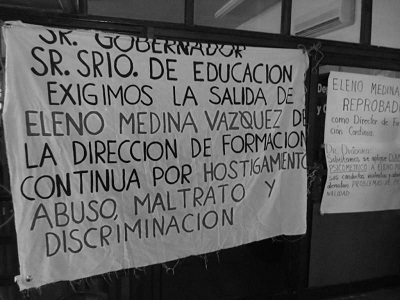 SR. GOBERNADOR
SR. SRIO. DE EDUCACION
EXIGIMOS LA SALIDA DE
ELENO MEDINA VAZQUEZ DE
LA DIRECCION DE FORMACION
CONTINUA POR HOSTIGAMIENTO
ABUSO, MALTRATO Y
DISCRIMINACION
ELENO MEDINA
REPROBADO
como Director de For
ción Continua